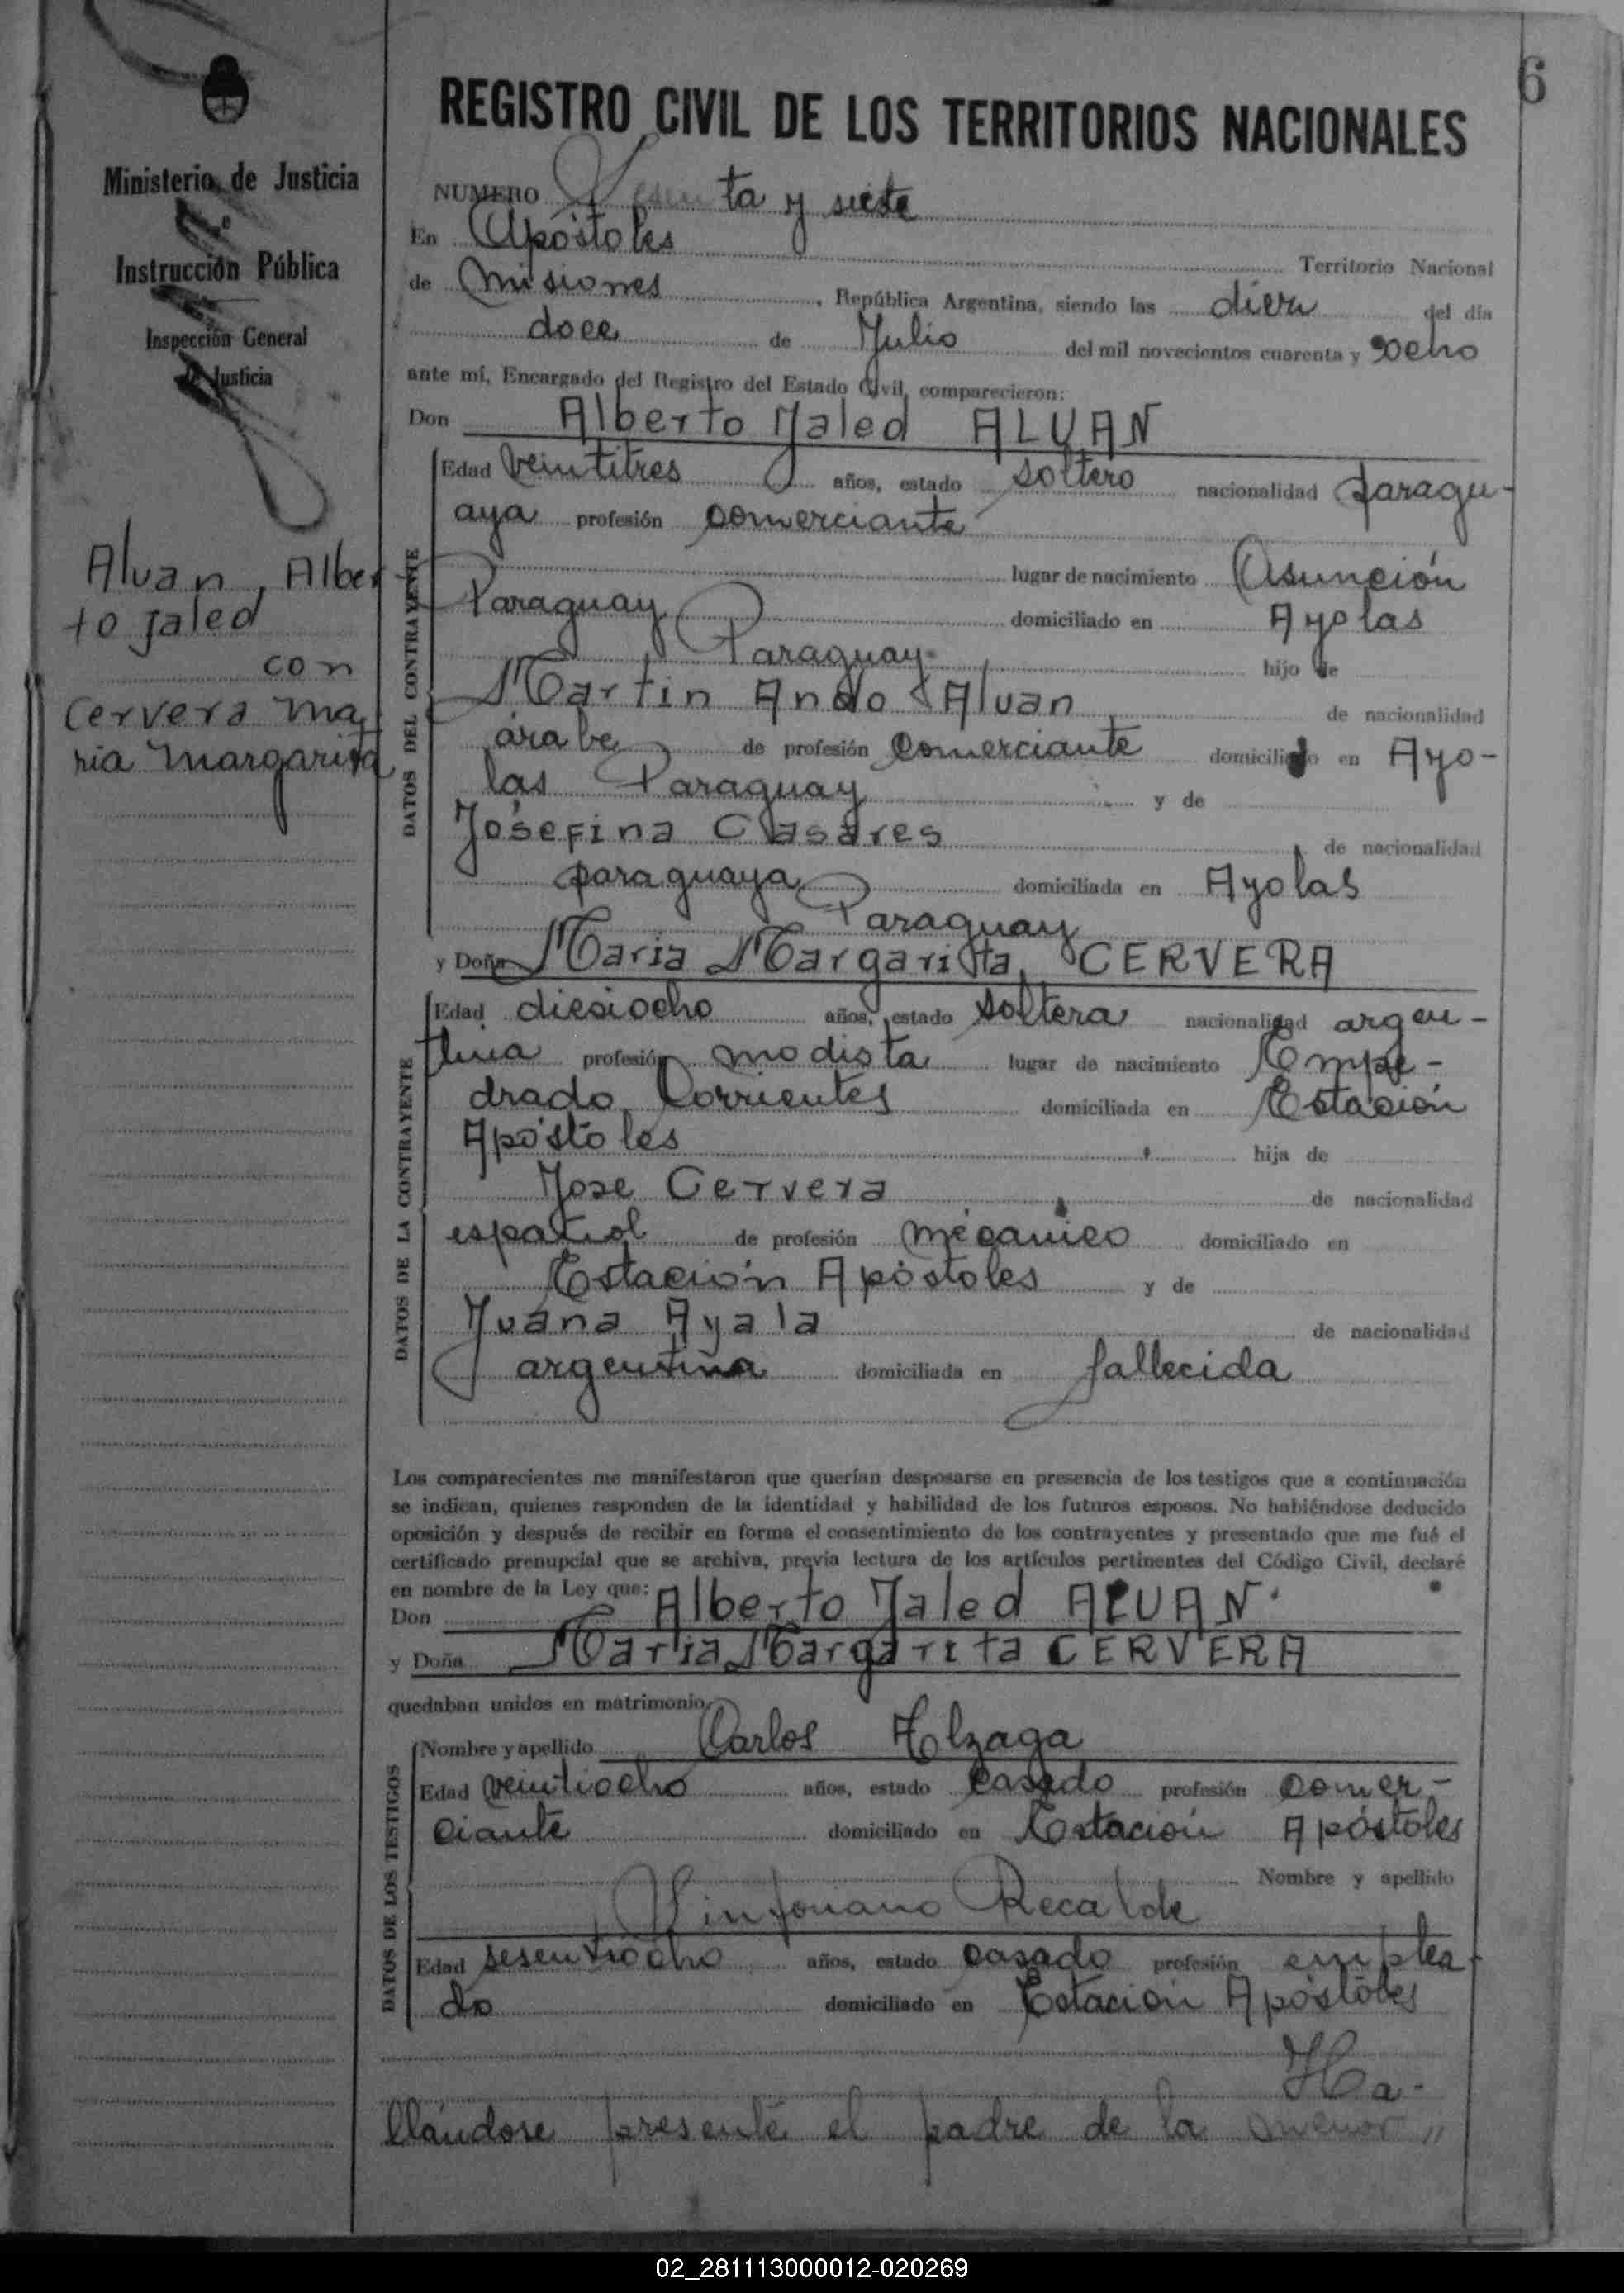 6
REGISTRO CIVIL DE LOS TERRITORIOS NACIONALES
Ministerio de Justicia
e
Instrucción Pública
Inspección General
de Justicia
Alvan, Alber-
to Jaled
con
Cervera Ma
ria Margarita
NUMERO Sesenta y siete
En Apóstoles Territorio Nacional
de Misiones, República Argentina, siendo las diez del día
doce de Julio del mil novecientos cuarenta y ocho
ante mí, Encargado del Registro del Estado Civil, comparecieron:
Don Alberto Jaled ALVAN
DATOS DEL CONTRAYENTE
Edad veintitres años, estado soltero nacionalidad paragu-
aya profesión comerciante
lugar de nacimiento Asunción
Paraguay domiciliado en Ayolas
Paraguay hijo de
Martin Alvan de nacionalidad
árabe de profesión comerciante domiciliado en Ayo-
las Paraguay y de
Josefina Casares de nacionalidad
paraguaya domiciliada en Ayolas
Paraguay
y Doña Maria Margarita CERVERA
DATOS DE LA CONTRAYENTE
Edad diesiocho años, estado soltera nacionalidad argen-
tina profesión modista lugar de nacimiento Empe-
drado Corrientes domiciliada en Estación
Apóstoles hija de
Jose Cervera de nacionalidad
español de profesión mécanico domiciliado en
Estación Apóstoles y de
Juana Ayala de nacionalidad
argentina domiciliada en fallecida
Los comparecientes me manifestaron que querían desposarse en presencia de los testigos que a continuación
se indican, quienes responden de la identidad y habilidad de los futuros esposos. No habiéndose deducido
oposición y después de recibir en forma el consentimiento de los contrayentes y presentado que me fué el
certificado prenupcial que se archiva, previa lectura de los artículos pertinentes del Código Civil, declaré
en nombre de la Ley que:
Don Alberto Jaled ALVAN
y Doña Maria Margarita CERVERA
quedaban unidos en matrimonio
DATOS DE LOS TESTIGOS
Nombre y apellido Carlos Alzaga
Edad veintiocho años, estado casado profesión comer-
ciante domiciliado en Estación Apóstoles
Nombre y apellido
Sinforiano Recalde
Edad sesentiocho años, estado casado profesión emplea-
do domiciliado en Estación Apóstoles
Ha-
llándose presente el padre de la menor "
02_281113000012-020269